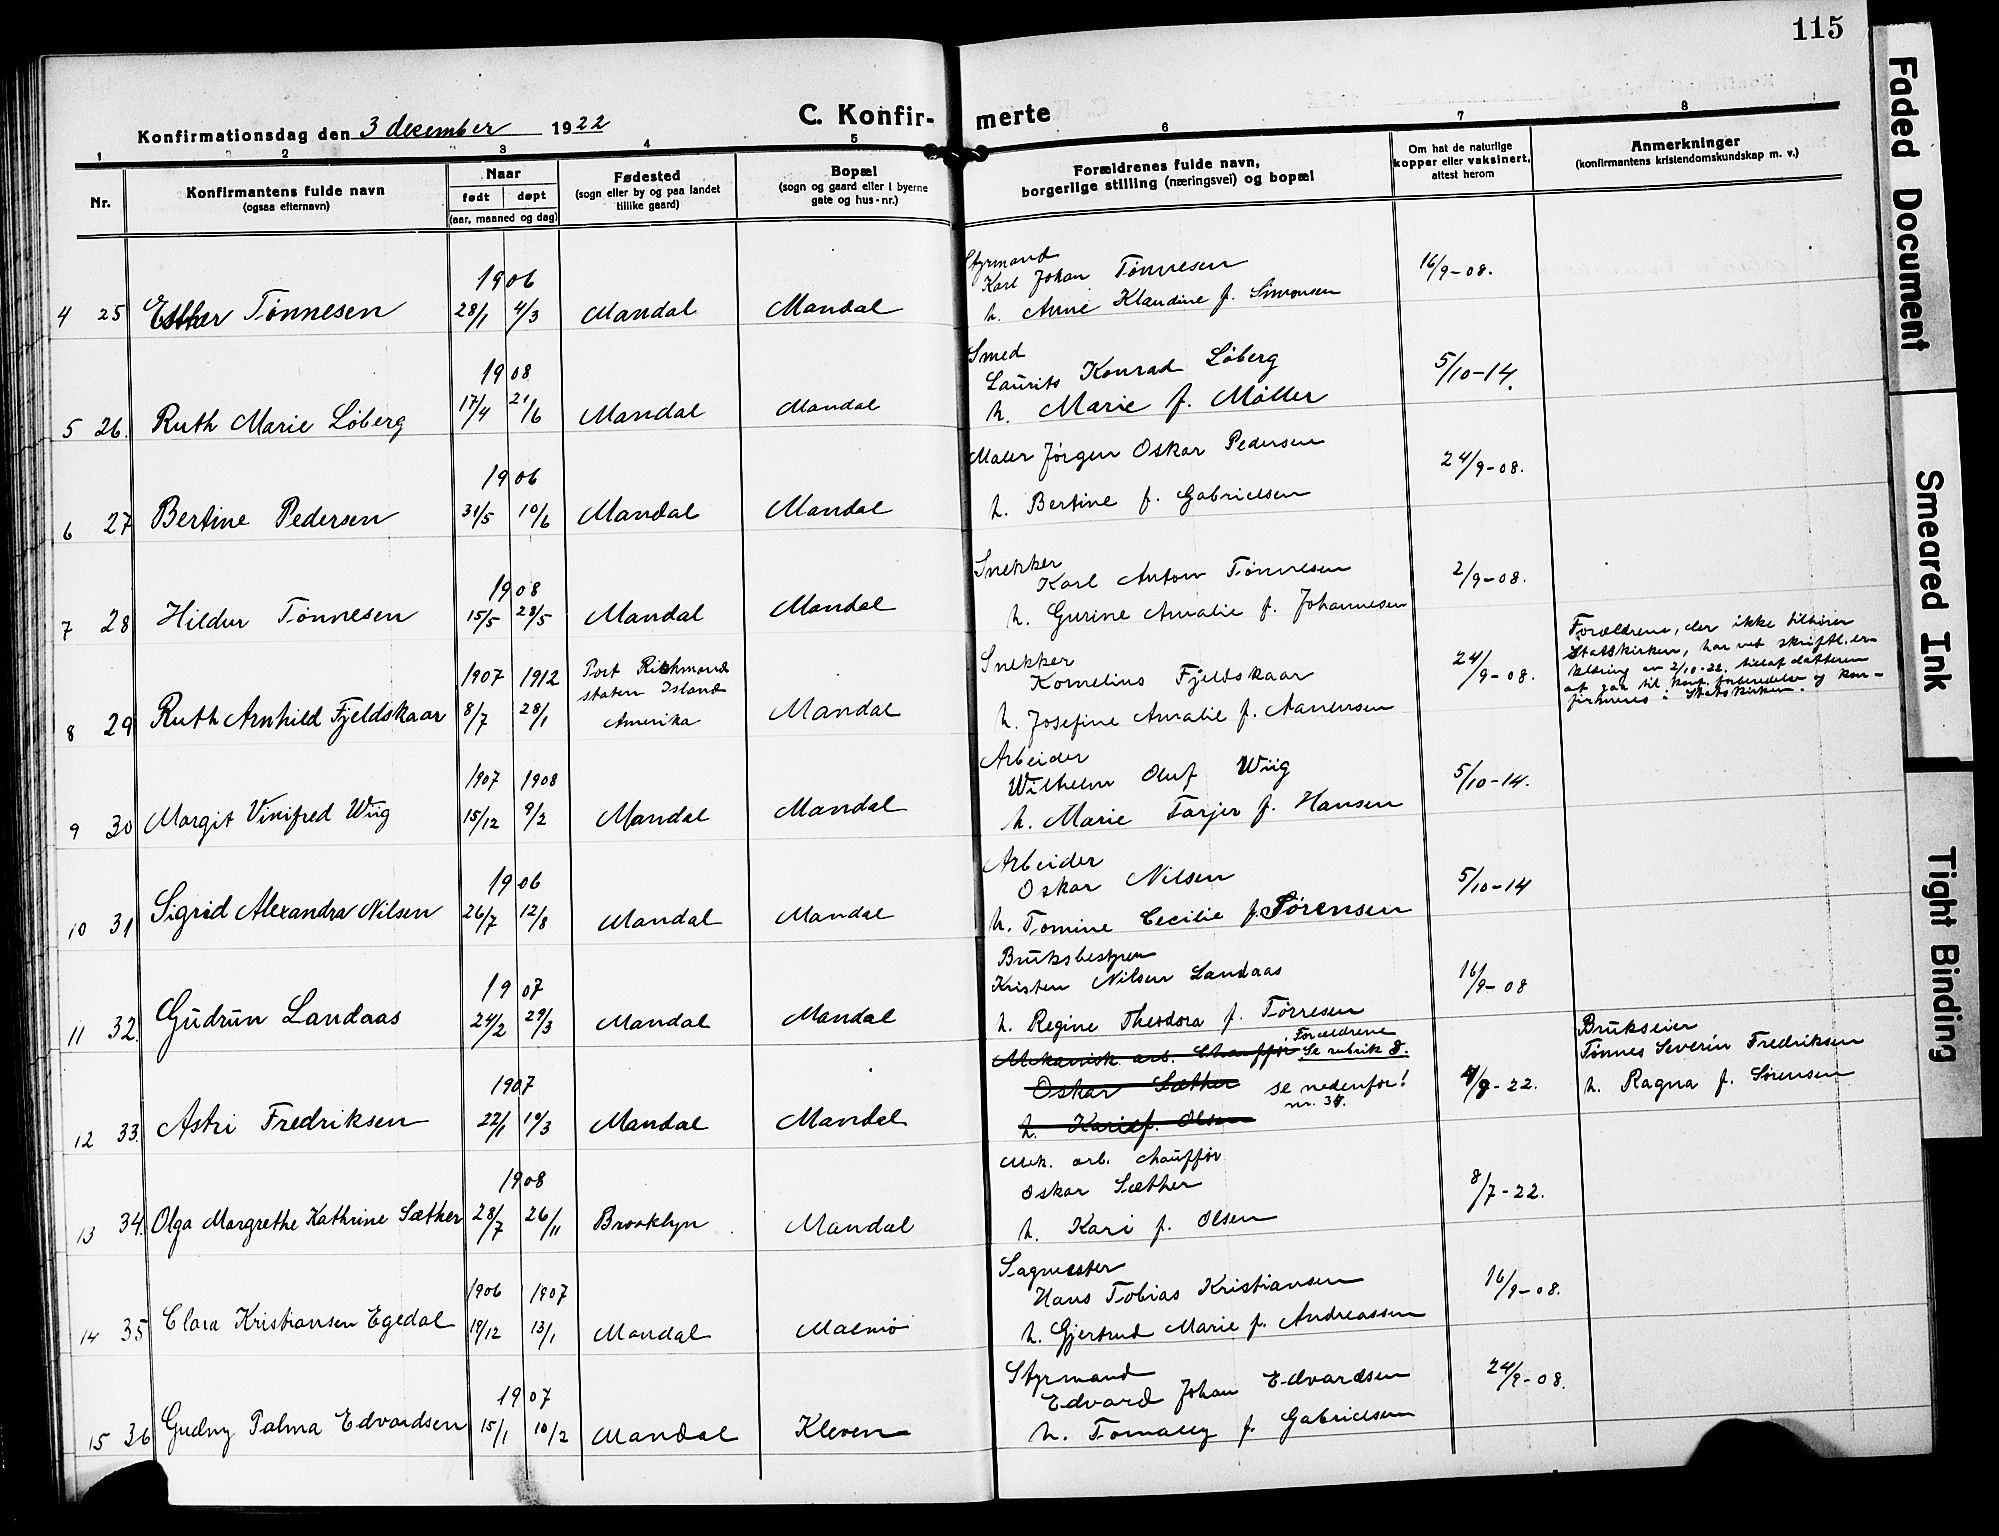 115
Faded Document
Smeared Ink
Tight Binding
Konfirmationsdag den 3 desember 1922
C. Konfir-merte
1 2 3 4 5 6 7 8
Nr.
Konfirmantens fulde navn
(ogsaa efternavn)
Naar
født døpt
(aar, maaned og dag)
Fødested
(sogn eller by og paa landet
tillike gaard)
Bopæl
(sogn og gaard eller i byerne
gate og hus-nr.)
Forældrenes fulde navn,
borgerlige stilling (næringsvei) og bopæl
Om hat de naturlige
kopper eller vaksinert,
attest herom
Anmerkninger
(konfirmantens kristendomskundskap m. v.)
1906
4 25 Esther Tønnesen 28/1 4/3 Mandal Mandal
Styrmand
Karl Johan Tønnesen
h. Anne Klaudine f. Simonsen
16/9-08.
1908
5 26. Ruth Marie Løberg 17/4 21/6 Mandal Mandal
Smed
Laurits Konrad Løberg
h. Marie f. Møller
5/10-14.
1906
6 27 Bertine Pedersen 31/5 10/6 Mandal Mandal
Maler Jørgen Oskar Pedersen
h. Bertine f. Gabrielsen
24/9-08.
1908
7 28 Hildur Tønnesen 15/5 28/5 Mandal Mandal
Snekker
Karl Anton Tønnesen
h. Gurine Amalie f. Johannesen
2/9-08.
1907 1912
8 29 Ruth Arnhild Fjeldskaar 8/7 28/1
Port Richmond
staten Island
Amerika
Mandal
Snekker
Kornelius Fjeldskaar
h. Josefine Amalie f. Aanensen
24/9-08.
Forældrene, der ikke tilhører
Statskirken, har ved skriftl. er-
klæring av 2/10-22. tillat datteren
at gaa til konf. forberedelse og kon-
firmeres i Statskirken.
1907 1908
9 30 Margit Vinifred Wiig 15/12 9/2 Mandal Mandal
Arbeider
Wilhelm Oluf Wiig
h. Marie Tarjer f. Hansen
5/10-14.
1906
10 31 Sigrid Alexandra Nilsen 26/7 12/8 Mandal Mandal
Arbeider
Oskar Nilsen
h. Tomine Cecilie f. Sørensen
5/10-14
1907
11 32. Gudrun Landaas 24/2 29/3 Mandal Mandal
Bruksbestyrer
Kristen Nilsen Landaas
h. Regine Theodora f. Tørresen
16/9-08
1907
12 33. Astri Fredriksen 22/1 10/3 Mandal Mandal
Mekanisk arb. Chauffør Forældrene
Se rubrik 8.
Oskar Sæther se nedenfor!
nr. 34.
h. Kari f. Olsen
4/9-22.
Brukseier
Tønnes Severin Fredriksen
h. Ragna f. Sørensen
1908
13 34. Olga Margrethe Kathrine Sæther 28/7 26/11 Brooklyn Mandal
Mek. arb. chauffør
Oskar Sæther
h. Kari f. Olsen
8/7-22.
1906 1907
14 35 Clara Kristiansen Egedal 19/12 13/1 Mandal Malmø
Sagmester
Hans Tobias Kristiansen
h. Gjertrud Marie f. Andreassen
16/9-08.
1907
15 36 Gudny Palma Edvardsen 15/1 10/2 Mandal Kleven
Styrmand
Edvard Johan Edvardsen
h. f. Gabrielsen
24/9-08.